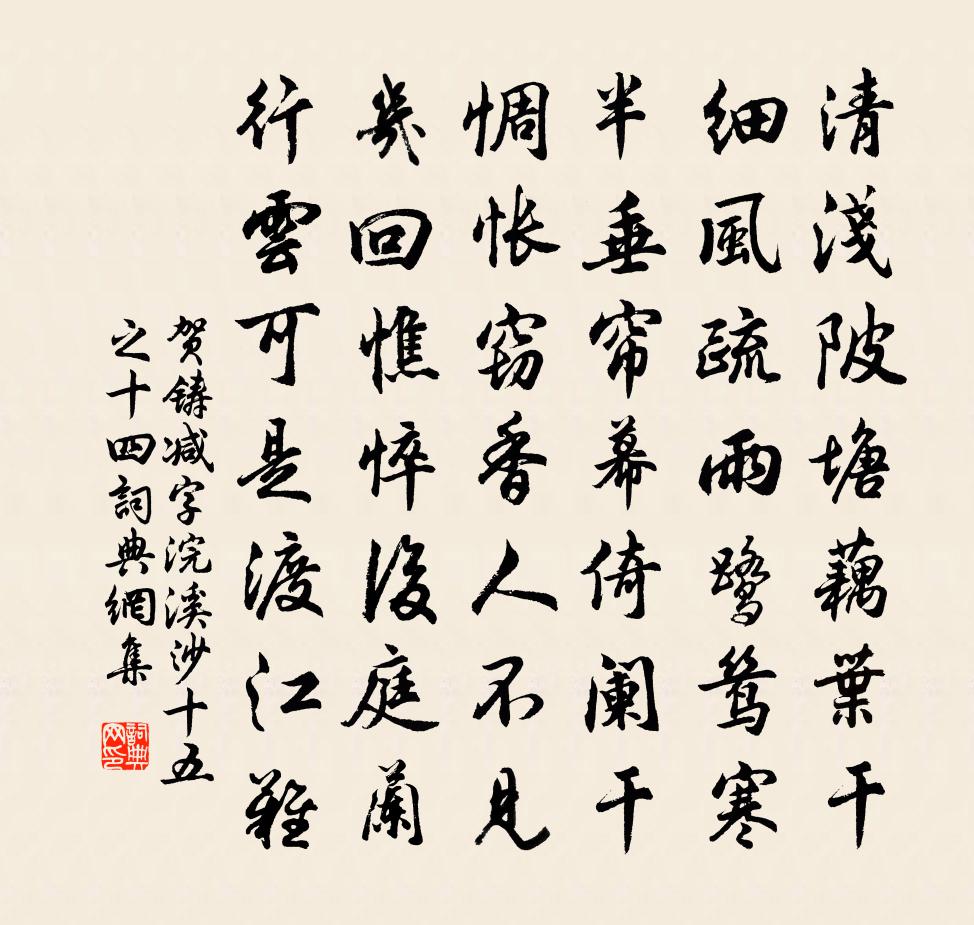 清淺陂塘藕葉干
細風疏雨鷺鴛寒
半垂帘幕倚闌干
惆悵窈香人不見
幾回憔悴後庭蘭
行雲可是渡江難
贺鑄减字浣溪沙十五
之十四詞典網集
詞典网印